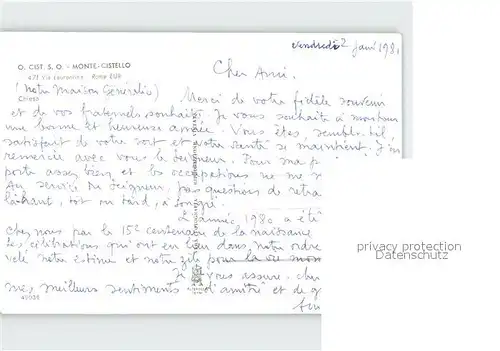 Vendredi 2 Janv 198
O. CIST. S. O. - MONTE-CISTELLO
471 Via Laurentina - Rome EUR
Cher Ami.
(Notre Maison Généralice)
Chiesa
Merci de votre fidèle souvenir
et de vos fraternels souhaits. Je vous souhaite à mon tour
une bonne et heureuse année. Vous êtes, semble-t-il,
satisfait de votre sort et votre santé se maintient. J'en
remercie avec vous le Seigneur. Pour ma p
porte assez bien et les occupations ne me m
Au service du Seigneur, pas question de retra
tôt ou tard, à
L'année 1980 a été
chez nous par le 15e centenaire de la naissance
les célébrations qui ont eu lieu dans notre ordre
velé notre estime et notre zèle pour la vie mon
Je vous assure, cher
mes meilleurs sentiments d'amitié et de g
49038
privacy protection